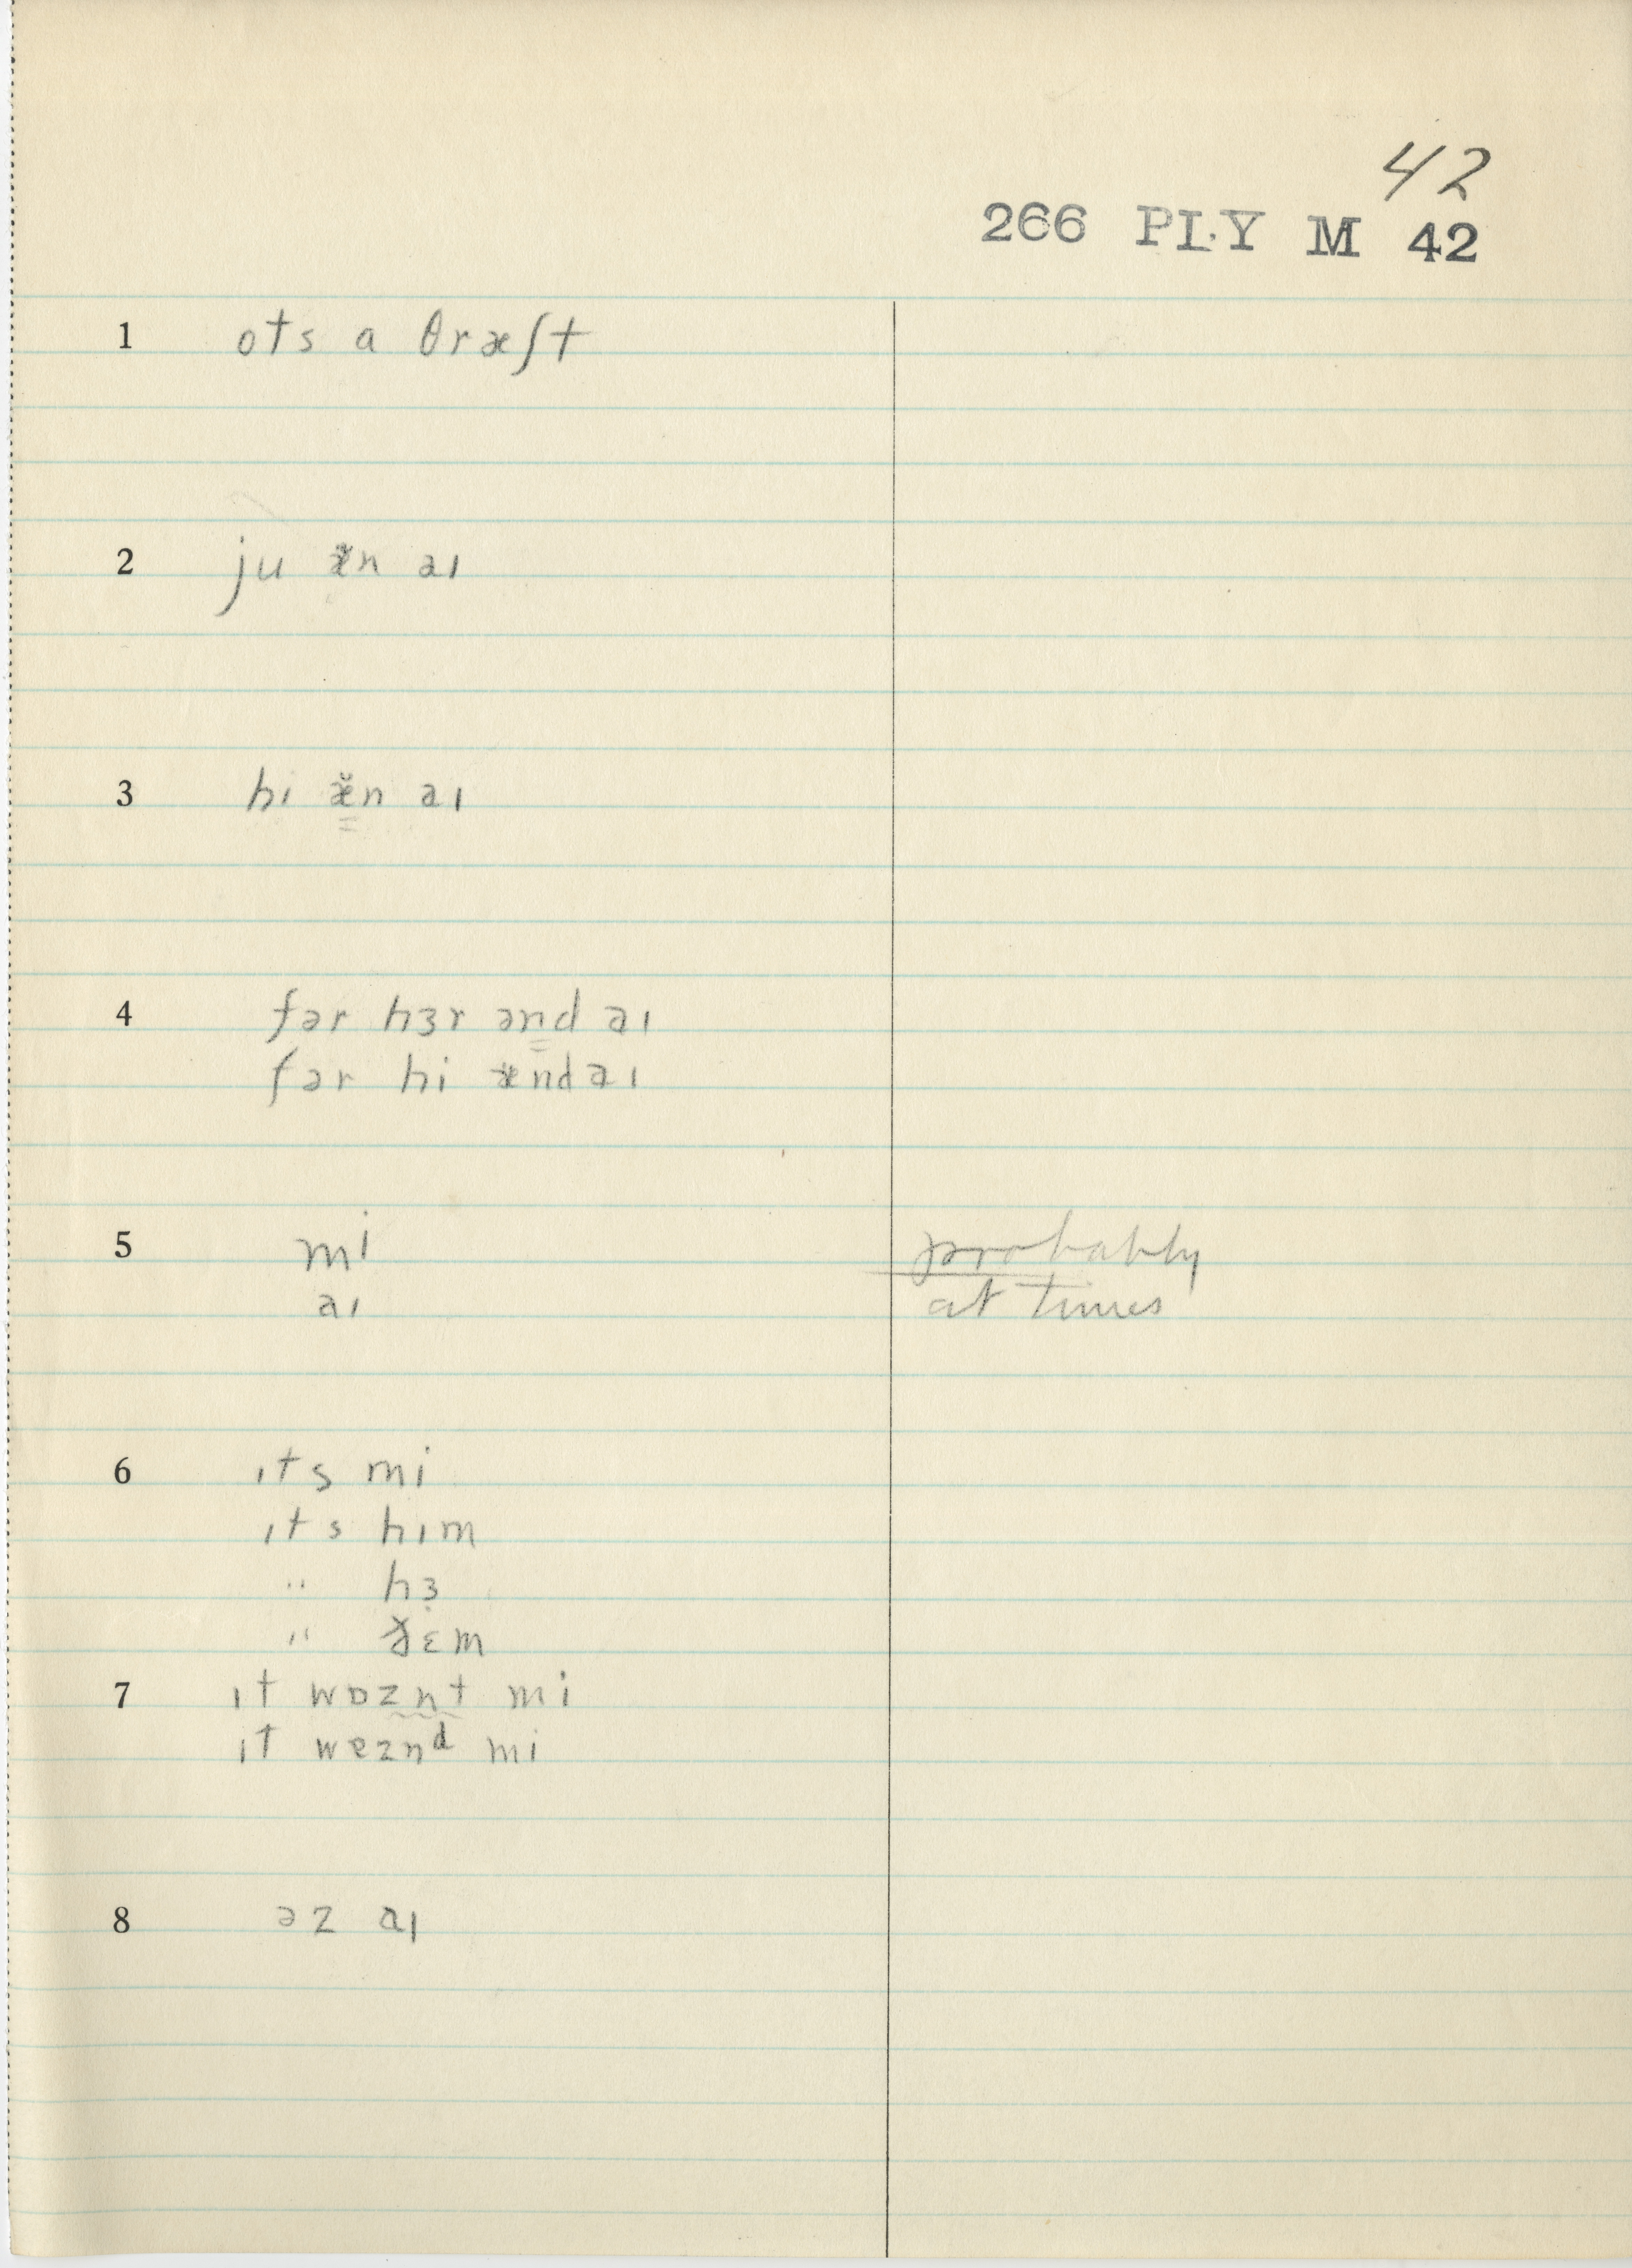 42
266 PLY M 42
1 ots a θræʃt
2 ju æ̆n aɪ
3 hi æ̆n aɪ
4 fər hɜr ənd aɪ
fər hi æ̆nd aɪ
5 mi probably
aɪ at times
6 ɪts mi
ɪts hɪm
" hɜ̣
" ðɛm
7 ɪt wɒznt mi
ɪt wɐznᵈ mi
8 əz aɪ